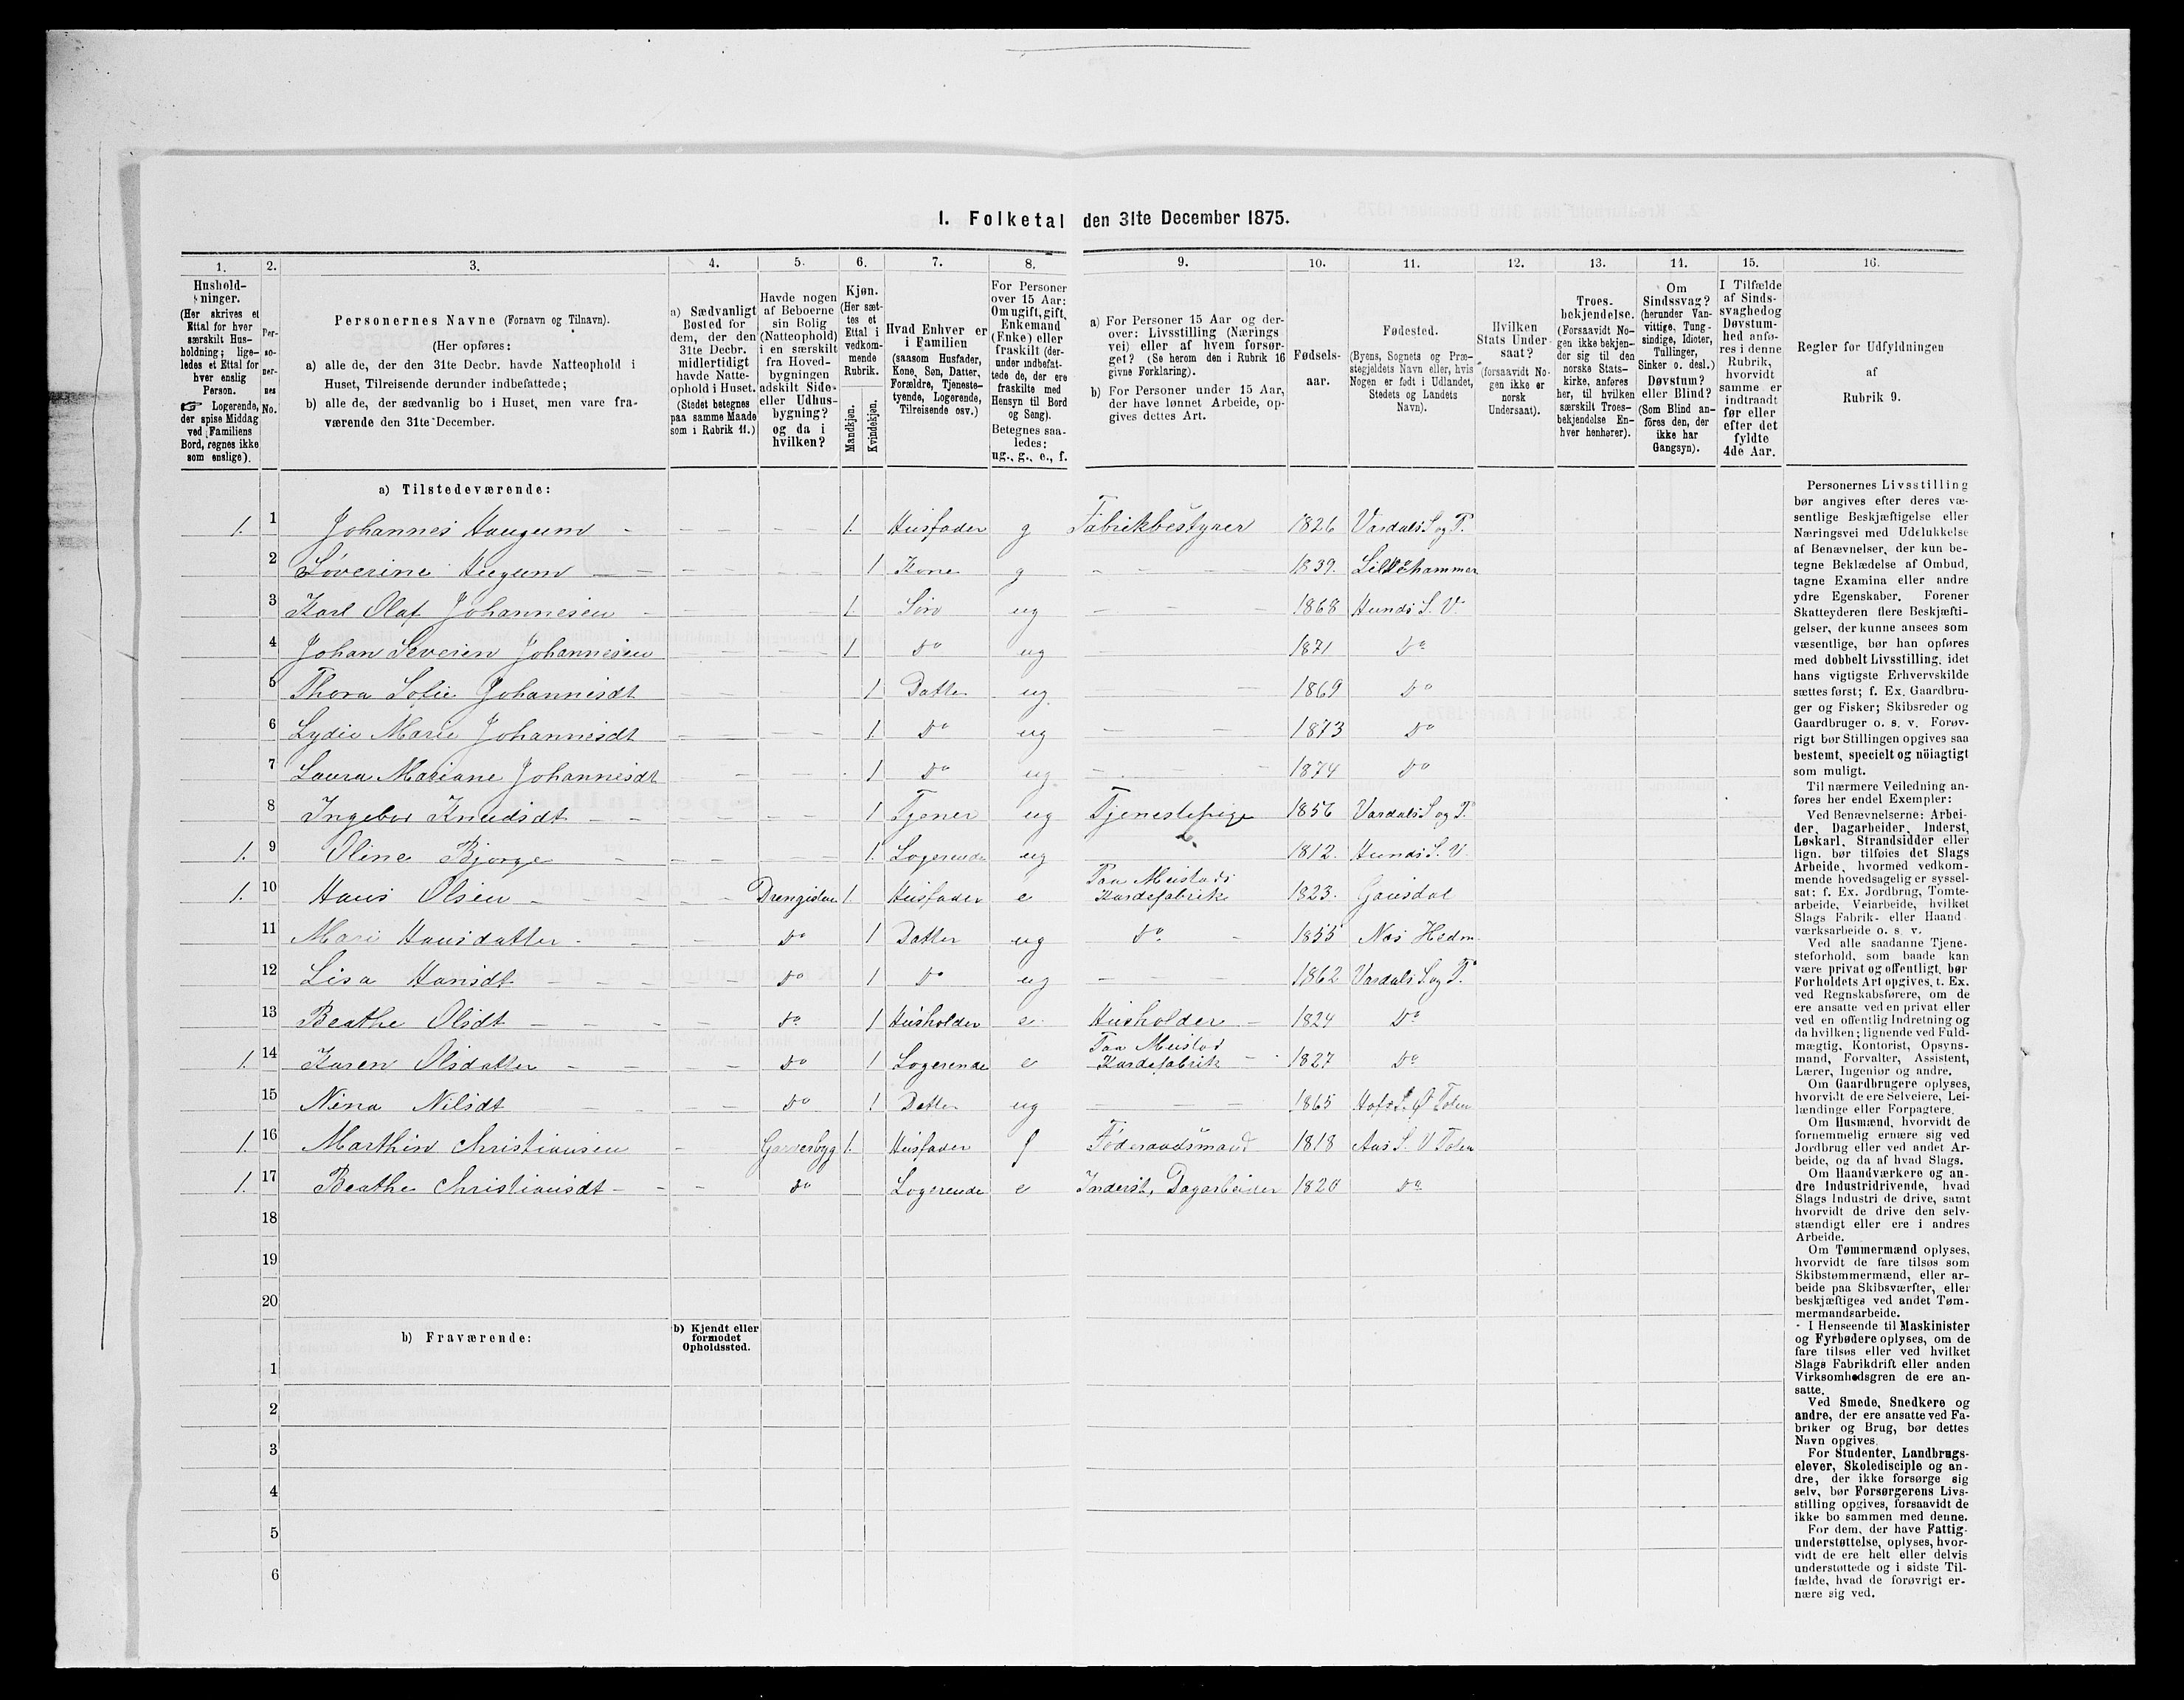 1. Folketal den 31te December 1875.
1. 2. 3. 4. 5. 6. 7. 8. 9. 10. 11. 12. 13. 14. 15. 16.
Hushold-
ninger.
(Her skrives et
Ettal for hver
særskilt Hus-
holdning; lige-
ledes et Ettal for
hver enslig
Person.
☞ Logerende,
der spise Middag
ved Familiens
Bord, regnes ikke
som enslige).
Per-
so-
ner-
nes
No.
Personernes Navne (Fornavn og Tilnavn).
(Her opføres:
a) alle de, der den 31te Decbr. havde Natteophold i
Huset, Tilreisende derunder indbefattede;
b) alle de, der sædvanlig bo i Huset, men vare fra-
værende den 31te December.
a) Sædvanligt
Bosted for
dem, der den
31te Decbr.
midlertidigt
havde Natte-
ophold i Huset.
(Stedet betegnes
paa samme Maade
som i Rubrik 11.)
Havde nogen
af Beboerne
sin Bolig
(Natteophold)
i en særskilt
fra Hoved-
bygningen
adskilt Side-
eller Udhus-
bygning?
og da i
hvilken?
Kjøn.
(Her sæt-
tes et
Ettal i
vedkom-
mende
Rubrik.
Mandkjøn.
Kvindekjøn.
Hvad Enhver er
i Familien
(saasom Husfader,
Kone, Søn, Datter,
Forældre, Tjeneste-
tyende, Logerende,
Tilreisende osv.)
For Personer
over 15 Aar:
Om ugift, gift,
Enkemand
(Enke) eller
fraskilt (der-
under indbefat-
tede de, der ere
fraskilte med
Hensyn til Bord
og Seng).
Betegnes saa-
ledes:
ug., g., e., f.
a) For Personer 15 Aar og der-
over: Livsstilling (Nærings
vei) eller af hvem forsør-
get? (Se herom den i Rubrik 16
givne Forklaring).
b) For Personer under 15 Aar,
der have lønnet Arbeide, op-
gives dettes Art.
Fødsels-
aar.
Fødested.
(Byens, Sognets og Præ-
stegjeldets Navn eller, hvis
Nogen er født i Udlandet,
Stedets og Landets
Navn).
Hvilken
Stats Under-
saat?
(forsaavidt No-
gen ikke er
norsk
Undersaat).
Troes-
bekjendelse.
(Forsaavidt No-
gen ikke bekjen-
der sig til den
norske Stats-
kirke, anføres
her, til hvilken
særskilt Troes-
bekjendelse En-
hver henhører).
Om
Sindssvag?
(herunder Van-
vittige, Tung-
sindige, Idioter,
Tullinger,
Sinker o. desl.)
Døvstum?
eller Blind?
(Som Blind an-
føres den, der
ikke har
Gangsyn).
I Tilfælde
af Sinds-
svaghed og
Døvstum-
hed anfø-
res i denne
Rubrik,
hvorvidt
samme er
indtraadt
før eller
efter det
fyldte
4de Aar.
Regler for Udfyldningen
af
Rubrik 9.
a) Tilstedeværende:
1. 1 Johannes Haugum 1. Husfader g Fabrikbestyrer 1826 Vardals S og P.
2 Søverine Haugum 1 Kone g 1839. Lillehammer
3 Karl Olaf Johannesen 1. Søn ug 1868 Hunds S. V.
4 Johan Severin Johannesen 1. do ug 1871 do
5 Thora Sofie Johannesdt 1 Datter ug 1869 do
6 Lydie Marie Johannesdt 1. do ug 1873 do
7 Laura Mariane Johannesdt 1 do ug 1874 do
8 Ingebor Knudsdt 1 Tjener ug Tjenestepige 1856 Vardals S og P.
1. 9 Oline Bjørge 1. Logerende ug 1812. Hunds S. V.
1. 10 Hans Olsen Drengestue 1. Husfader e Paa Mustads Kardefabrik 1823. Gausdal
11 Mari Hansdatter do 1 Datter ug do 1855 Næs Hedm.
12 Lisa Hansdt do 1 do ug 1862 Vardals S. og P.
13 Beathe Olsdt do 1 Husholder e Husholder 1824 do
1. 14 Karen Olsdatter do 1 Logerende e Paa Mustad Kardefabrik 1827 do
15 Nina Nilsdt do 1 Datter ug 1865 Hofs S. Ø Toten
1. 16 Marthin Christiansen 1. Husfader f Føderaadsmand 1818 Aas S. V Toten
1. 17 Beathe Christiansdt do Logerende e Inderst, Dagarbeider 1820 do
18
19
20
b) Fraværende:
b) Kjendt eller
formodet
Opholdssted.
1
2
3
4
5
6
Personernes Livsstilling
bør angives efter deres væ-
sentlige Beskjæftigelse eller
Næringsvei med Udelukkelse
af Benævnelser, der kun be-
tegne Beklædelse af Ombud,
tagne Examina eller andre
ydre Egenskaber. Forener
Skatteyderen flere Beskjæfti-
gelser, der kunne ansees som
væsentlige, bør han opføres
med dobbelt Livsstilling, idet
hans vigtigste Erhvervskilde
sættes først; f. Ex. Gaardbru-
ger og Fisker; Skibsreder og
Gaardbruger o. s. v. Forøv-
rigt bør Stillingen opgives saa
bestemt, specielt og nöiagtigt
som muligt.
Til nærmere Veiledning an-
føres her endel Exempler:
Ved Benævnelserne: Arbei-
der, Dagarbeider, Inderst,
Løskarl, Strandsidder eller
lign. bør tilføies det Slags
Arbeide, hvormed vedkom-
mende hovedsagelig er syssel-
sat: f. Ex. Jordbrug, Tomte-
arbeide, Veiarbeide, hvilket
Slags Fabrik- eller Haand
værksarbeide o. s. v.
Ved alle saadanne Tjene-
steforhold, som baade kan
være privat og offentligt, bør
Forholdets Art opgives, t. Ex.
ved Regnskabsførere, om de
ere ansatte ved en privat eller
ved en offentlig Indretning og
da hvilken; lignende ved Fuld-
mægtig, Kontorist, Opsyns-
mand, Forvalter, Assistent,
Lærer, Ingeniør og andre.
Om Gaardbrugere oplyses,
hvorvidt de ere Selveiere, Lei-
lændinge eller Forpagtere.
Om Husmænd, hvorvidt de
fornemmelig ernære sig ved
Jordbrug eller ved andet Ar-
beide, og da af hvad Slags.
Om Haandværkere og an-
dre Industridrivende, hvad
Slags Industri de drive, samt
hvorvidt de drive den selv-
stændigt eller ere i andres
Arbeide.
Om Tømmermænd oplyses,
hvorvidt de fare tilsøs som
Skibstømmermænd, eller ar-
beide paa Skibsværfter, eller
beskjæftiges ved andet Tøm-
mermandsarbeide.
I Henseende til Maskinister
og Fyrbødere oplyses, om de
fare tilsøs eller ved hvilket
Slags Fabrikdrift eller anden
Virksomhedsgren de ere an-
satte.
Ved Smede, Snedkere og
andre, der ere ansatte ved Fa-
briker og Brug, bør dettes
Navn opgives.
For Studenter, Landbrugs-
elever, Skoledisciple og an-
dre, der ikke forsørge sig
selv, bør Forsørgerens Livs-
stilling opgives, forsaavidt de
ikke bo sammen med denne.
For dem, der have Fattig-
understøttelse, oplyses, hvor-
vidt de ere helt eller delvis
understøttede og i sidste Til-
fælde, hvad de forøvrigt er-
nære sig ved.